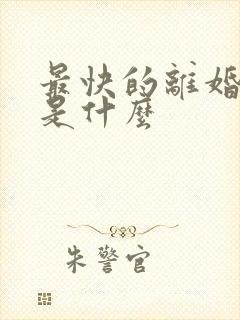 最快的離婚
是什麼
朱警官